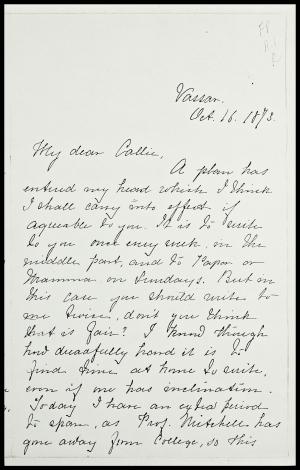 Vassar.
Oct. 16. 1873.
My dear Callie,
A plan has
entered my head which I think
I shall carry into effect if
agreeable to you. It is to write
to you once every week, in the
middle part, and to Papa or
Mamma on Sundays. But in
this case you should write to
me twice, don't you think
that is fair? I know though
how dreadfully hard it is to
find time at home to write,
even if one has inclination.
Today I have an extra period
to spare, as Prof. Mitchell has
gone away from College, so this